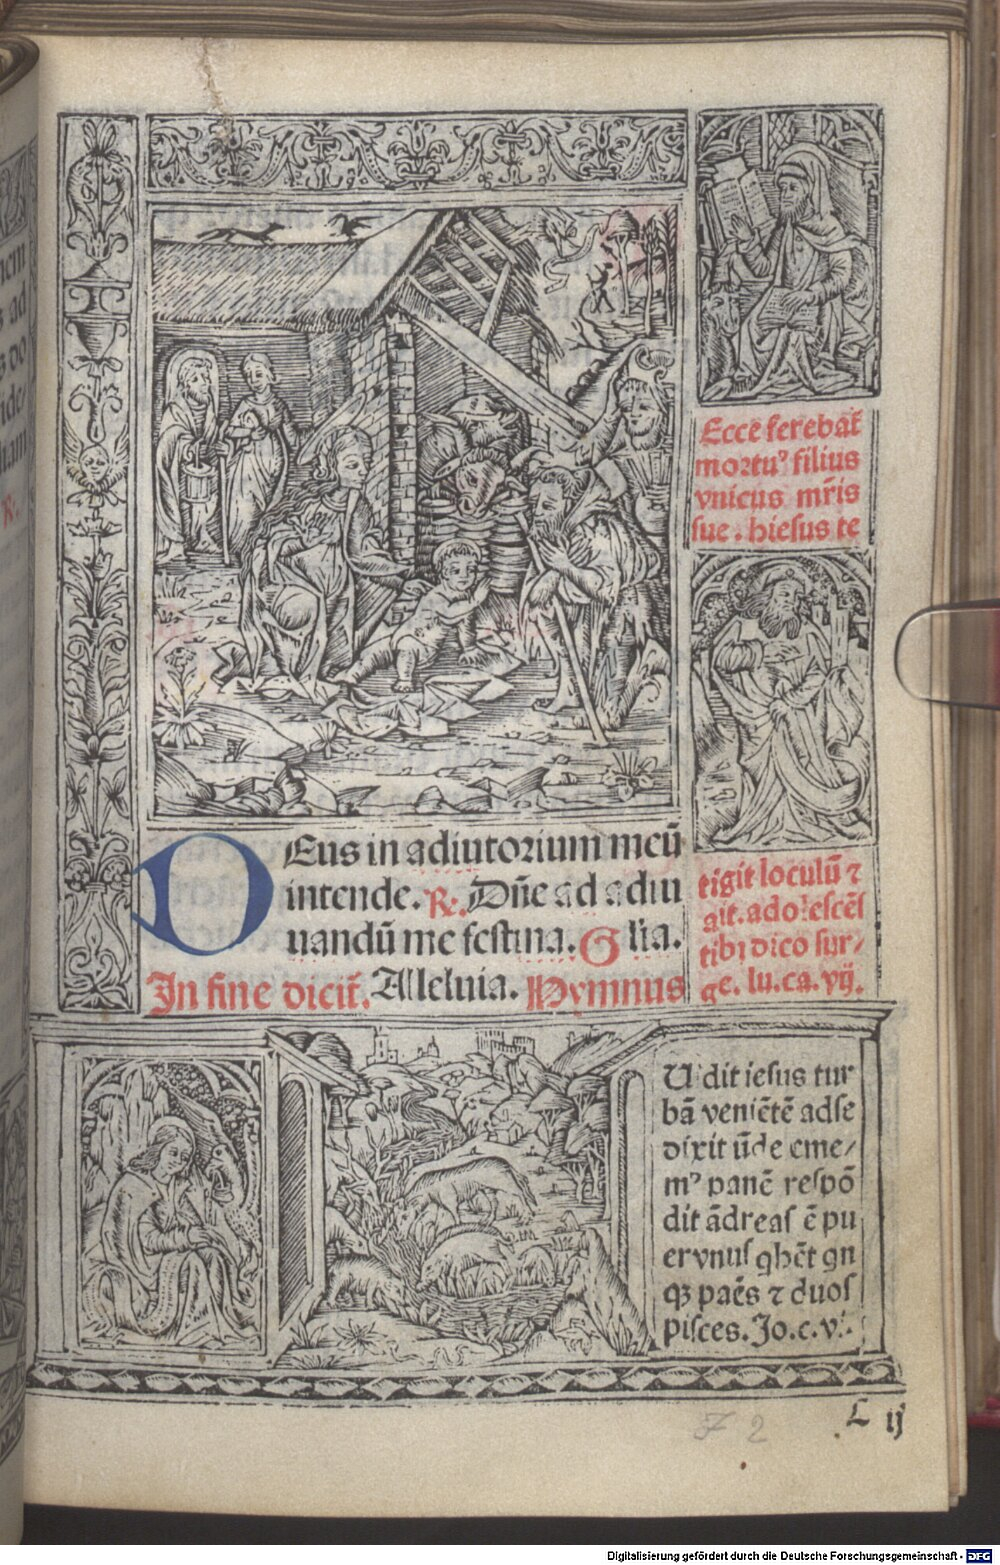 Ecce ferebat̃
mortuꝰ filius
vnicus mr̃is
sue . hiesus te
DEus in adiutorium meũ
intende. ℟. Dñe ad adiu
uandũ me festina. Glia.
In fine dicit̃. Alleluia. Hymnus
tigit loculũ ⁊
ait. adolescẽs
tibi dico sur/
ge. lu. ca. vij.
Vidit iesus tur
bã veniẽtẽ ad se
dixit ũde eme/
mꝰ panẽ respõ
dit ãdreas ẽ pu
er vnus qhẽt qn
qꝫ paẽs ⁊ duos
pisces. Jo. c. vi.
L ij
F 2
Digitalisierung gefördert durch die Deutsche Forschungsgemeinschaft - DFG